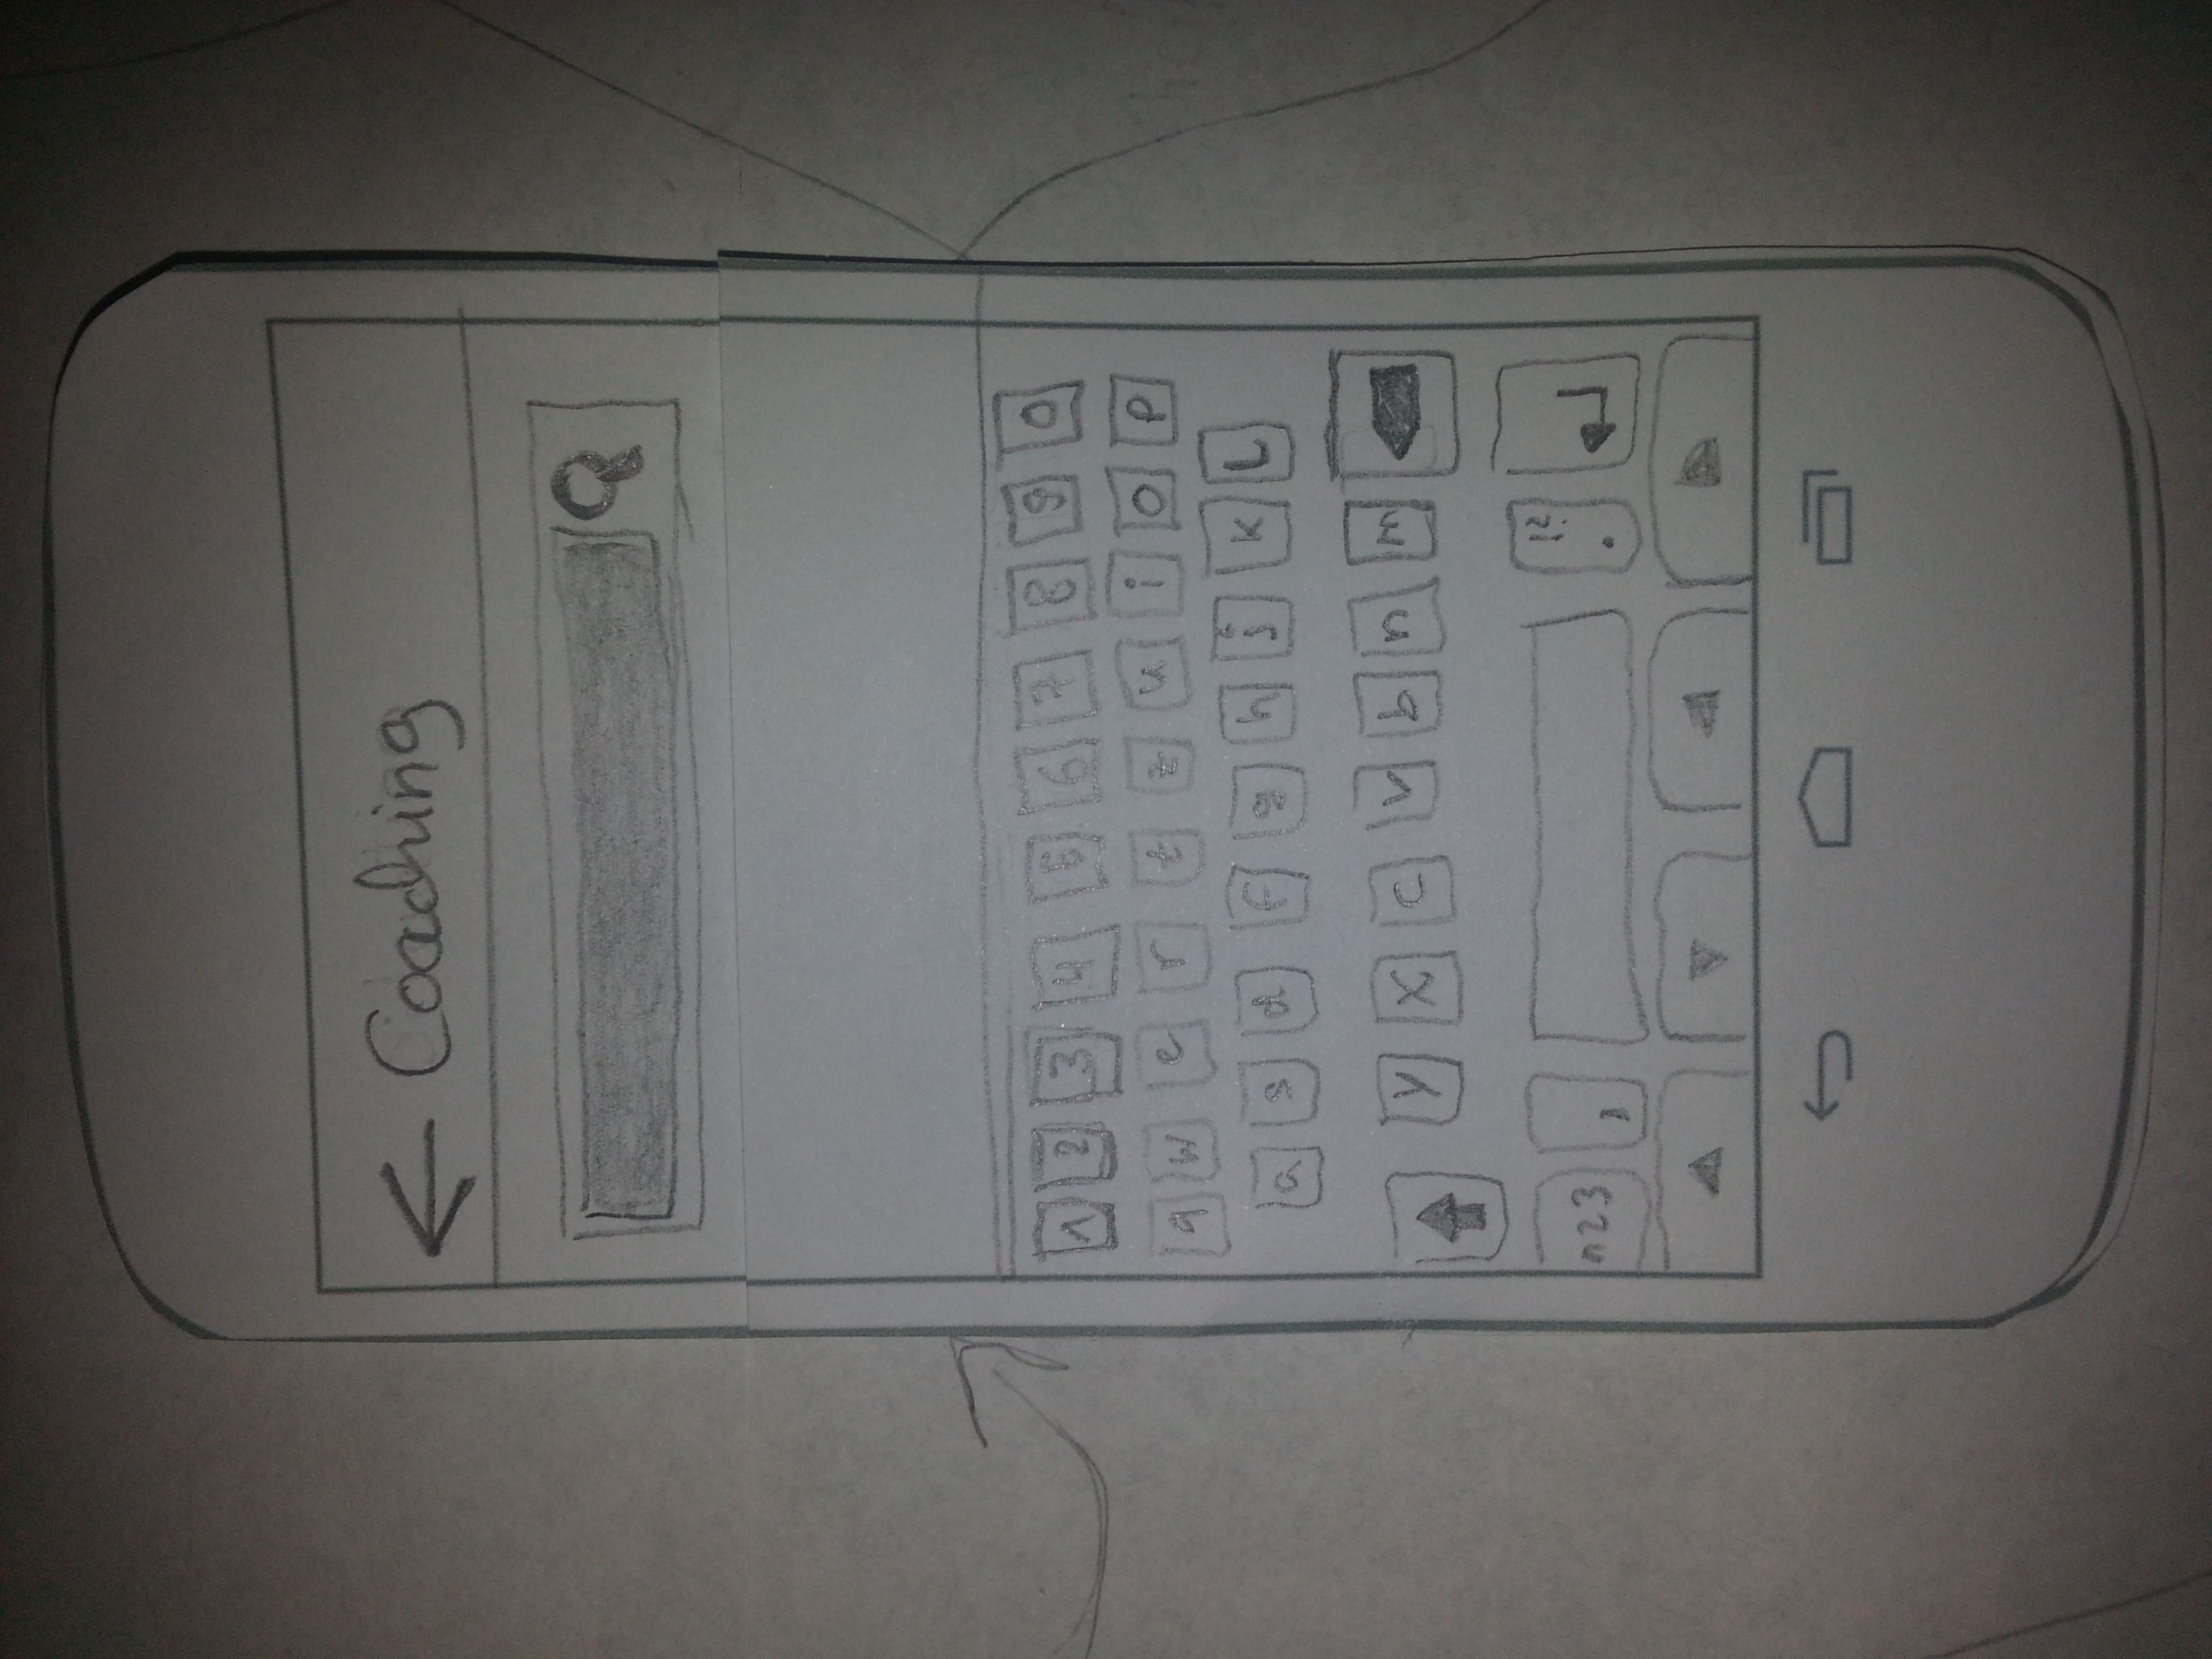 Coaching
1 2 3 4 5 6 7 8 9 0
q w e r t z u i o p
a s d f g h j k L
y x c v b n m
123 , . !?